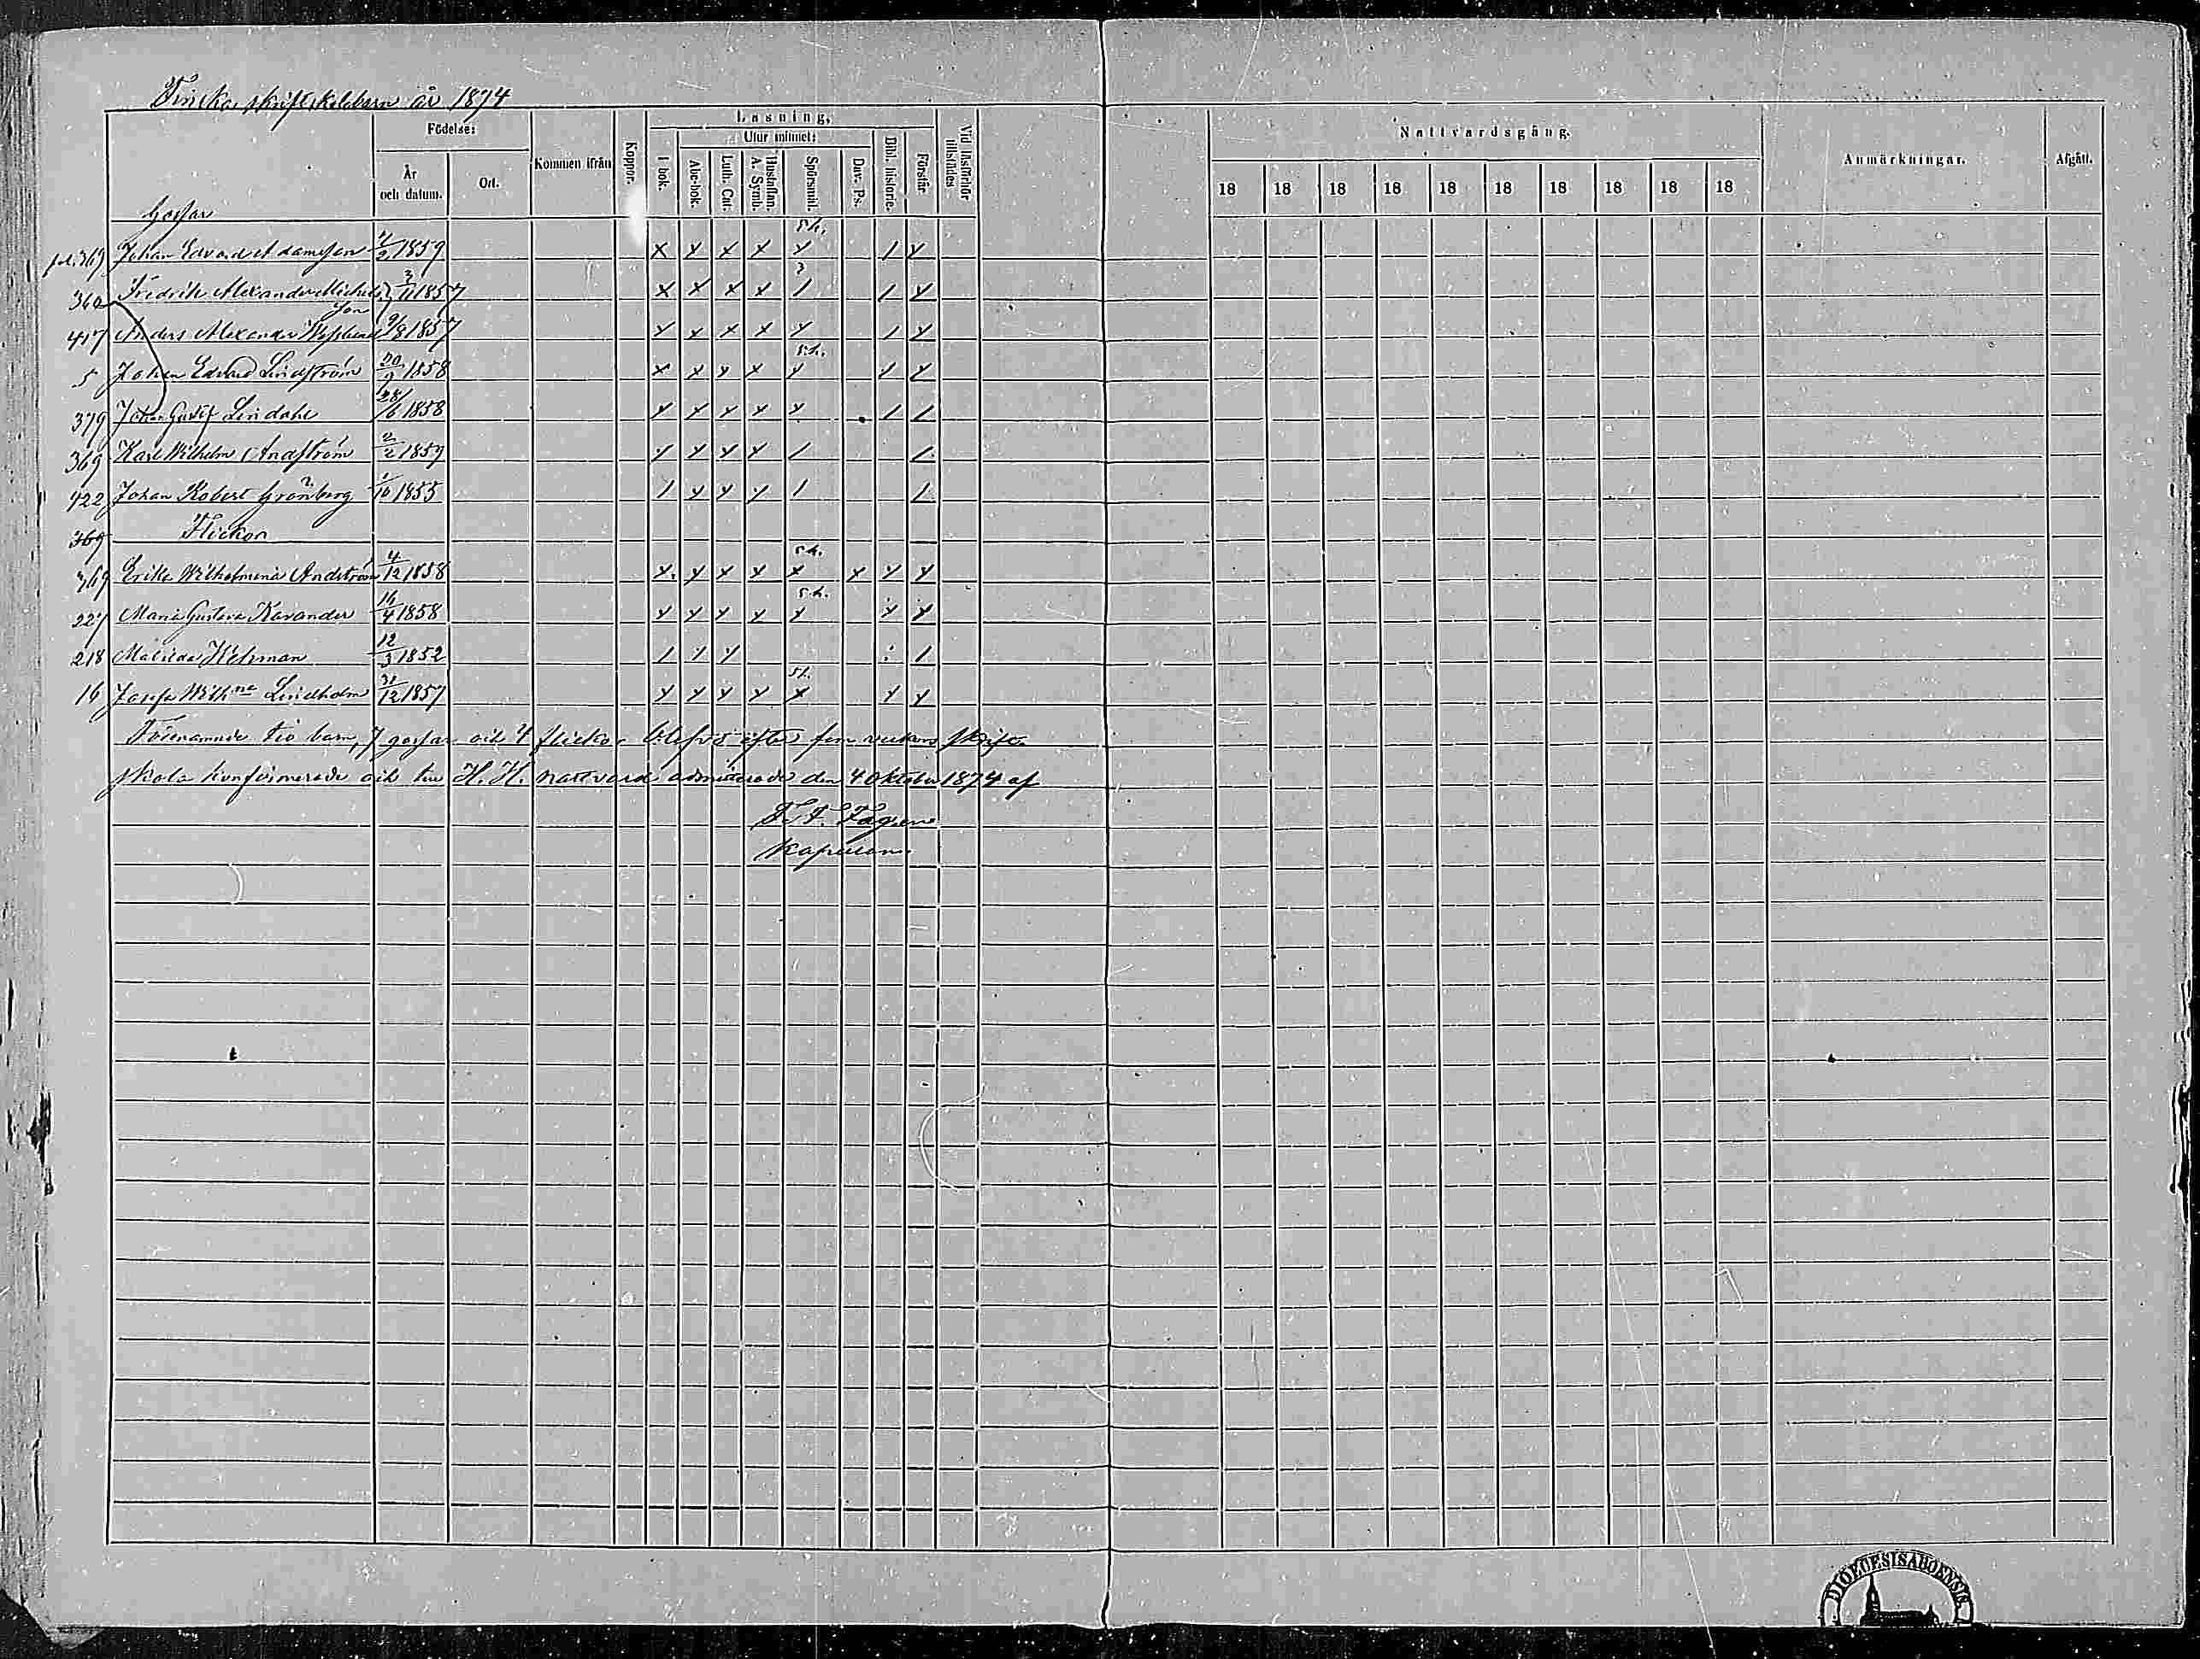 Finska skriftskolebarn år 1874
Födelse:
År och datum.
Ort.
Kommen ifrån
Koppor.
Läsning.
I bok.
Utur minnet:
Abc-bok.
Luth. Cat.
Hustaflan. A. Symb.
Spörsmål.
Dav. Ps.
Bibl. historie.
Förstår
Vid läsförhör tillstädes
Nattvardsgång.
18 18 18 18 18 18 18 18 18 18
Anmärkningar.
Afgått.
Gossar
fol. 369 Johan Edvard Adamsson 2 1859
360 Fredrik Alexander Michels son 3/11 1857
417 Anders Alexander 9/8 1857
5 Johan Edvard Lindström 20/9 1858
379 Johan Gustaf Lindahl 28/6 1858
369 Karl Wilhelm Andström 2/2 1859
422 Johan Robert Grönberg /10 1855
369 Flickor
369 Erika Wilhelmina Andström 4/12 1858
227 Maria Gustava Kavander 16/4 1858
218 Matilda Hehman 12/3 1852
16 Josefa Wilhna Lindholm 31/12 1857
Förenämnde tio barn, 7 gossar och 4 flickor blefvo efter fem veckors skrift-
skola konfirmerade och till H. H. nattvard admitterade den 4 Oktober 1874 af
Kapellan.
DIOECESIS ABOENSIS